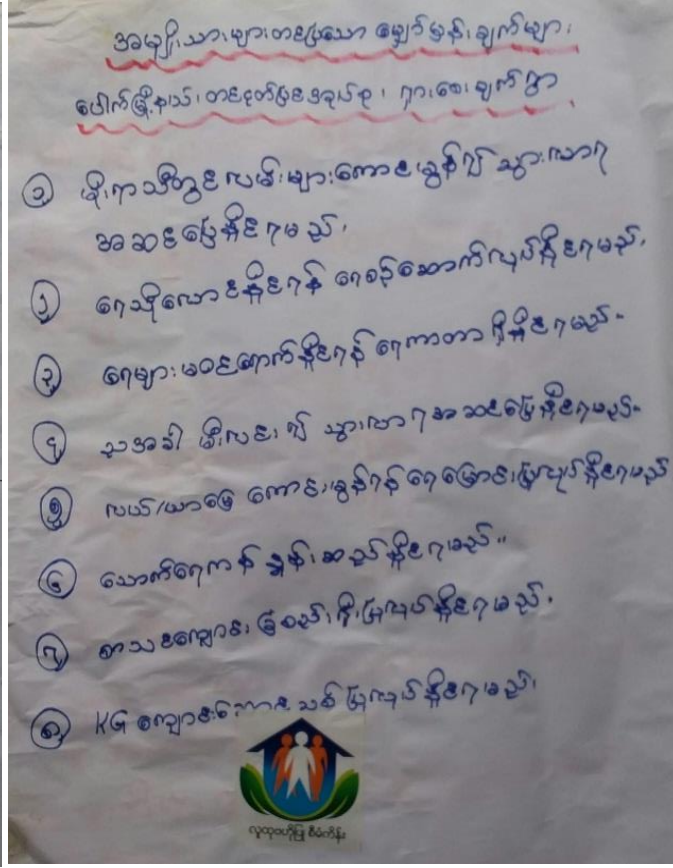 အမျိုးသားများတင်ပြသော မျှော်မှန်းချက်များ
ပေါက်မြို့နယ်၊ တင်ငုတ်မြင်အုပ်စု၊ ရှားစေးချက်ရွာ
၁ မိုးရာသီတွင်လမ်းများကောင်းမွန်၍ သွားလာရ
အဆင်ပြေနိုင်ရမည်။
၂ ရေသိုလှောင်နိုင်ရန် ရေစင်ဆောက်လုပ်နိုင်ရမည်။
၃ ရေများမဝင်ရောက်နိုင်ရန် ရေကာတာရှိနိုင်ရမည်။
၄ ညအခါ မီးလင်း၍ သွားလာရအဆင်ပြေနိုင်ရမည်။
၅ လယ်/ယာမြေ ကောင်းမွန်ရန် ရေမြောင်းပြုလုပ်နိုင်ရမည်
၆ သောက်ရေကန် နှုန်းဆည်နိုင်ရမည်။
၇ စာသင်ကျောင်း ခြံစည်းရိုးပြုလုပ်နိုင်ရမည်။
၈ KG ကျောင်းဆောင်သစ် ပြုလုပ်နိုင်ရမည်။
လူထုဗဟိုပြု စီမံကိန်း